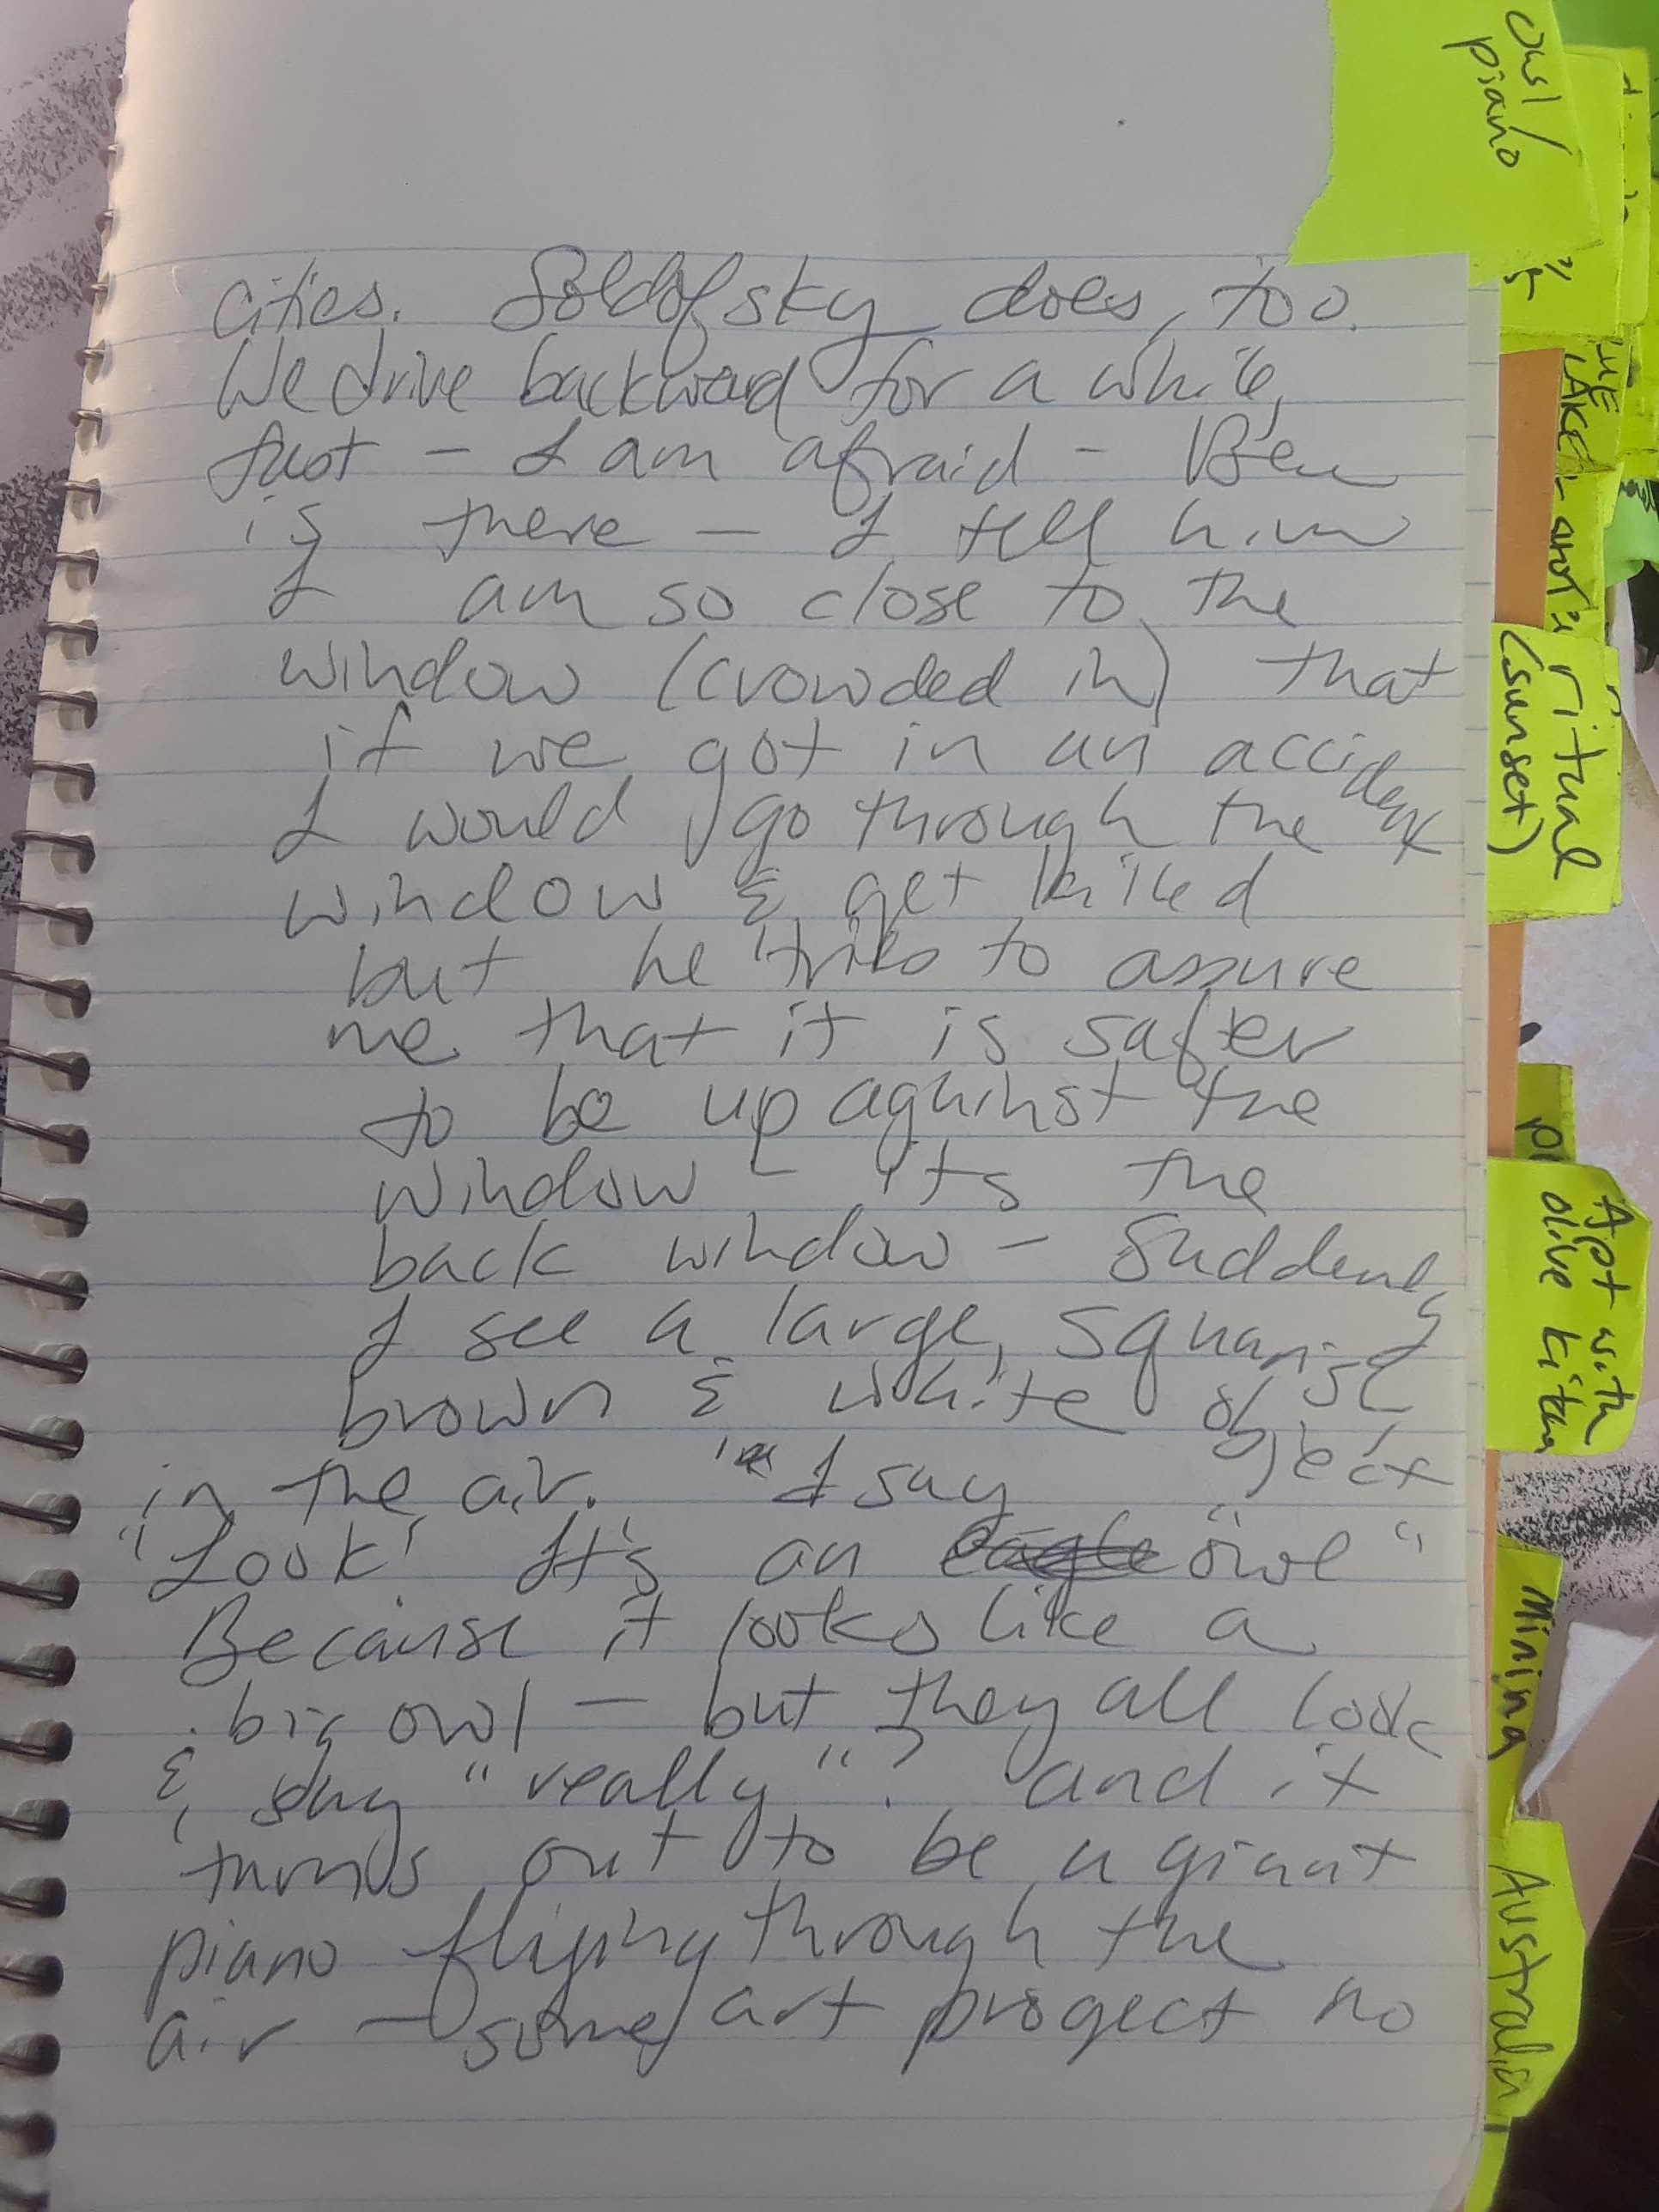 cities. Soldofsky does, too.
We drive backward for a while,
fast - I am afraid - Ben
is there - I tell him
I am so close to the
window (crowded in) that
if we got in an accident
I would go through the
window & get killed
but he tries to assure
me that it is safer
to be up against the
window - its the
back window - Suddenly
I see a large, squarish
brown & white object
in the air. I say
"Look! It's an eagle "owl"
Because it looks like a
big owl - but they all look
& say "really"? and it
turns out to be a giant
piano flying through the
air - some art project no
owl/
piano
LAKE
ritual
(sunset)
Apt with
olive kitchen
Mining
Australia